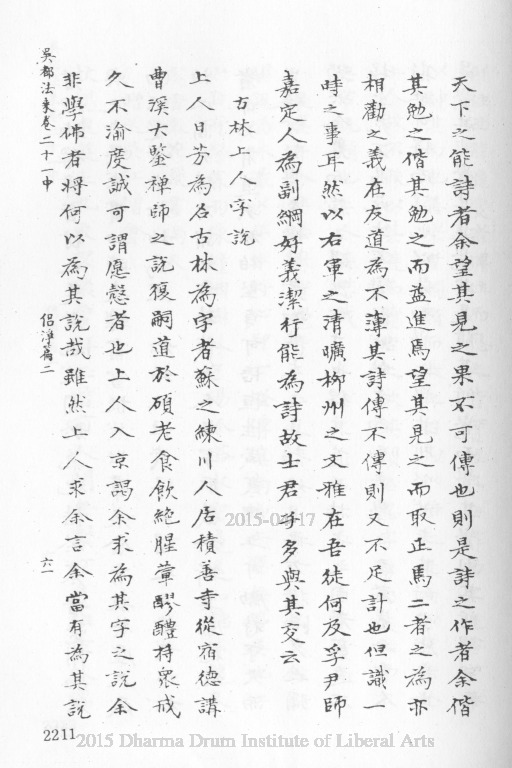 天下之能詩者余望其見之果不可傳也則是詩之作者余偕
其勉之偕其勉之而益進焉望其見之而取正焉二者之為亦
相勸之義在友道為不薄其詩傳不傳則又不足計也但識一
時之事耳然以右軍之清曠柳州之文雅在吾徒何及孚尹師
嘉定人為副綱好義潔行能為詩故士君子多與其交云
古林上人字說
上人日芳為名古林為字者蘇之練川人居積善寺從宿德講
曹溪大鑒禪師之說復嗣道於碩老食飲絕腥葷醪醴持眾戒
久不渝度誠可謂愿慤者也上人入京謁余求為其字之說余
非學佛者將何以為其說哉雖然上人求余言余當有為其說
吳都法乘卷二十一中 侶淨篇二 六一
2211
2015-04-17
2015 Dharma Drum Institute of Liberal Arts